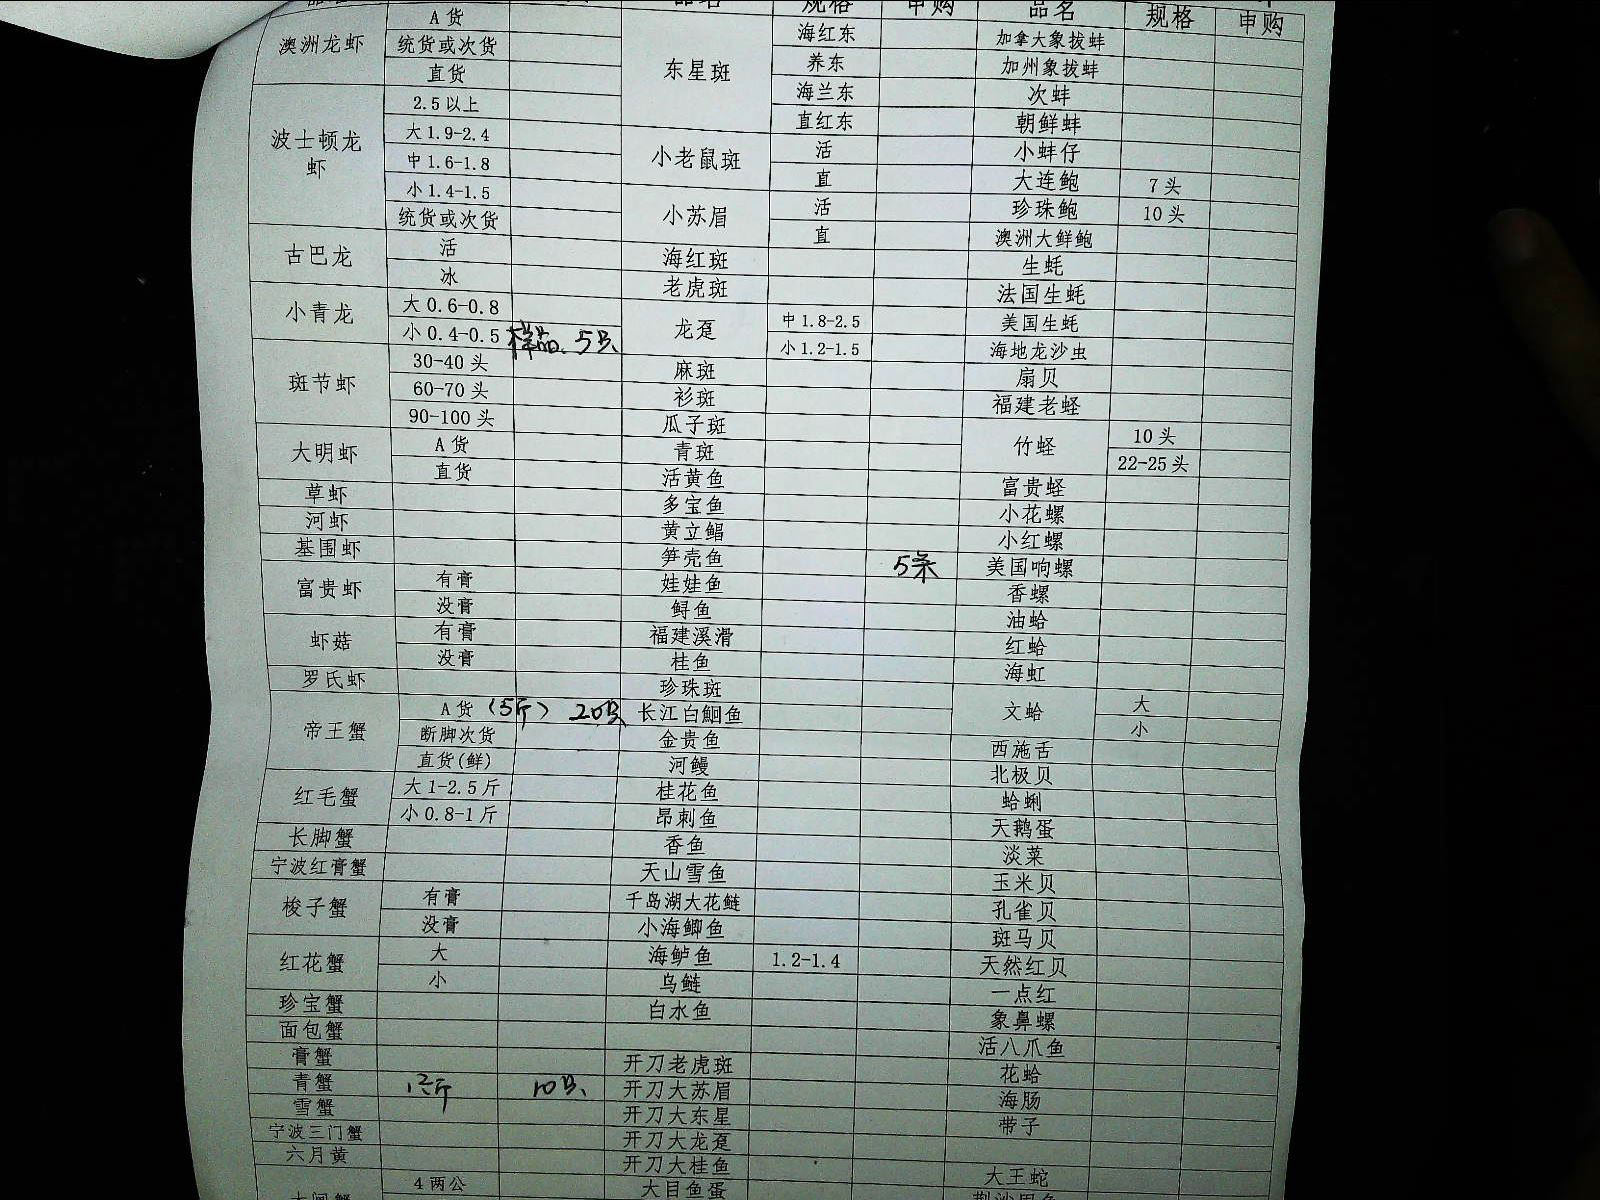 品名 规格 申购 品名 规格 申购
澳洲龙虾 A货 东星斑 海红东 加拿大象拔蚌
统货或次货 养东 加州象拔蚌
直货 海兰东 次蚌
波士顿龙虾 2.5以上 直红东 朝鲜蚌
大1.9-2.4 小老鼠斑 活 小蚌仔
中1.6-1.8 直 大连鲍 7头
小1.4-1.5 小苏眉 活 珍珠鲍 10头
统货或次货 直 澳洲大鲜鲍
古巴龙 活 海红斑 生蚝
冰 老虎斑 法国生蚝
小青龙 大0.6-0.8 龙趸 中1.8-2.5 美国生蚝
小0.4-0.5 样品、5只 小1.2-1.5 海地龙沙虫
斑节虾 30-40头 麻斑 扇贝
60-70头 衫斑 福建老蛏
90-100头 瓜子斑 竹蛏 10头
大明虾 A货 青斑 22-25头
直货 活黄鱼 富贵蛏
草虾 多宝鱼 小花螺
河虾 黄立鲳 小红螺
基围虾 笋壳鱼 5条 美国响螺
富贵虾 有膏 娃娃鱼 香螺
没膏 鲟鱼 油蛤
虾菇 有膏 福建溪滑 红蛤
没膏 桂鱼 海虹
罗氏虾 珍珠斑 文蛤 大
帝王蟹 A货(5斤) 20只 长江白鮰鱼 小
断脚次货 金贵鱼 西施舌
直货(鲜) 河鳗 北极贝
红毛蟹 大1-2.5斤 桂花鱼 蛤蜊
小0.8-1斤 昂刺鱼 天鹅蛋
长脚蟹 香鱼 淡菜
宁波红膏蟹 天山雪鱼 玉米贝
梭子蟹 有膏 千岛湖大花鲢 孔雀贝
没膏 小海鲫鱼 斑马贝
红花蟹 大 海鲈鱼 1.2-1.4 天然红贝
小 乌鲢 一点红
珍宝蟹 白水鱼 象鼻螺
面包蟹 活八爪鱼
膏蟹 开刀老虎斑 花蛤
青蟹 10只 开刀大苏眉 海肠
雪蟹 开刀大东星 带子
宁波三门蟹 开刀大龙趸
六月黄 开刀大桂鱼 大王蛇
4两公 大目鱼蛋